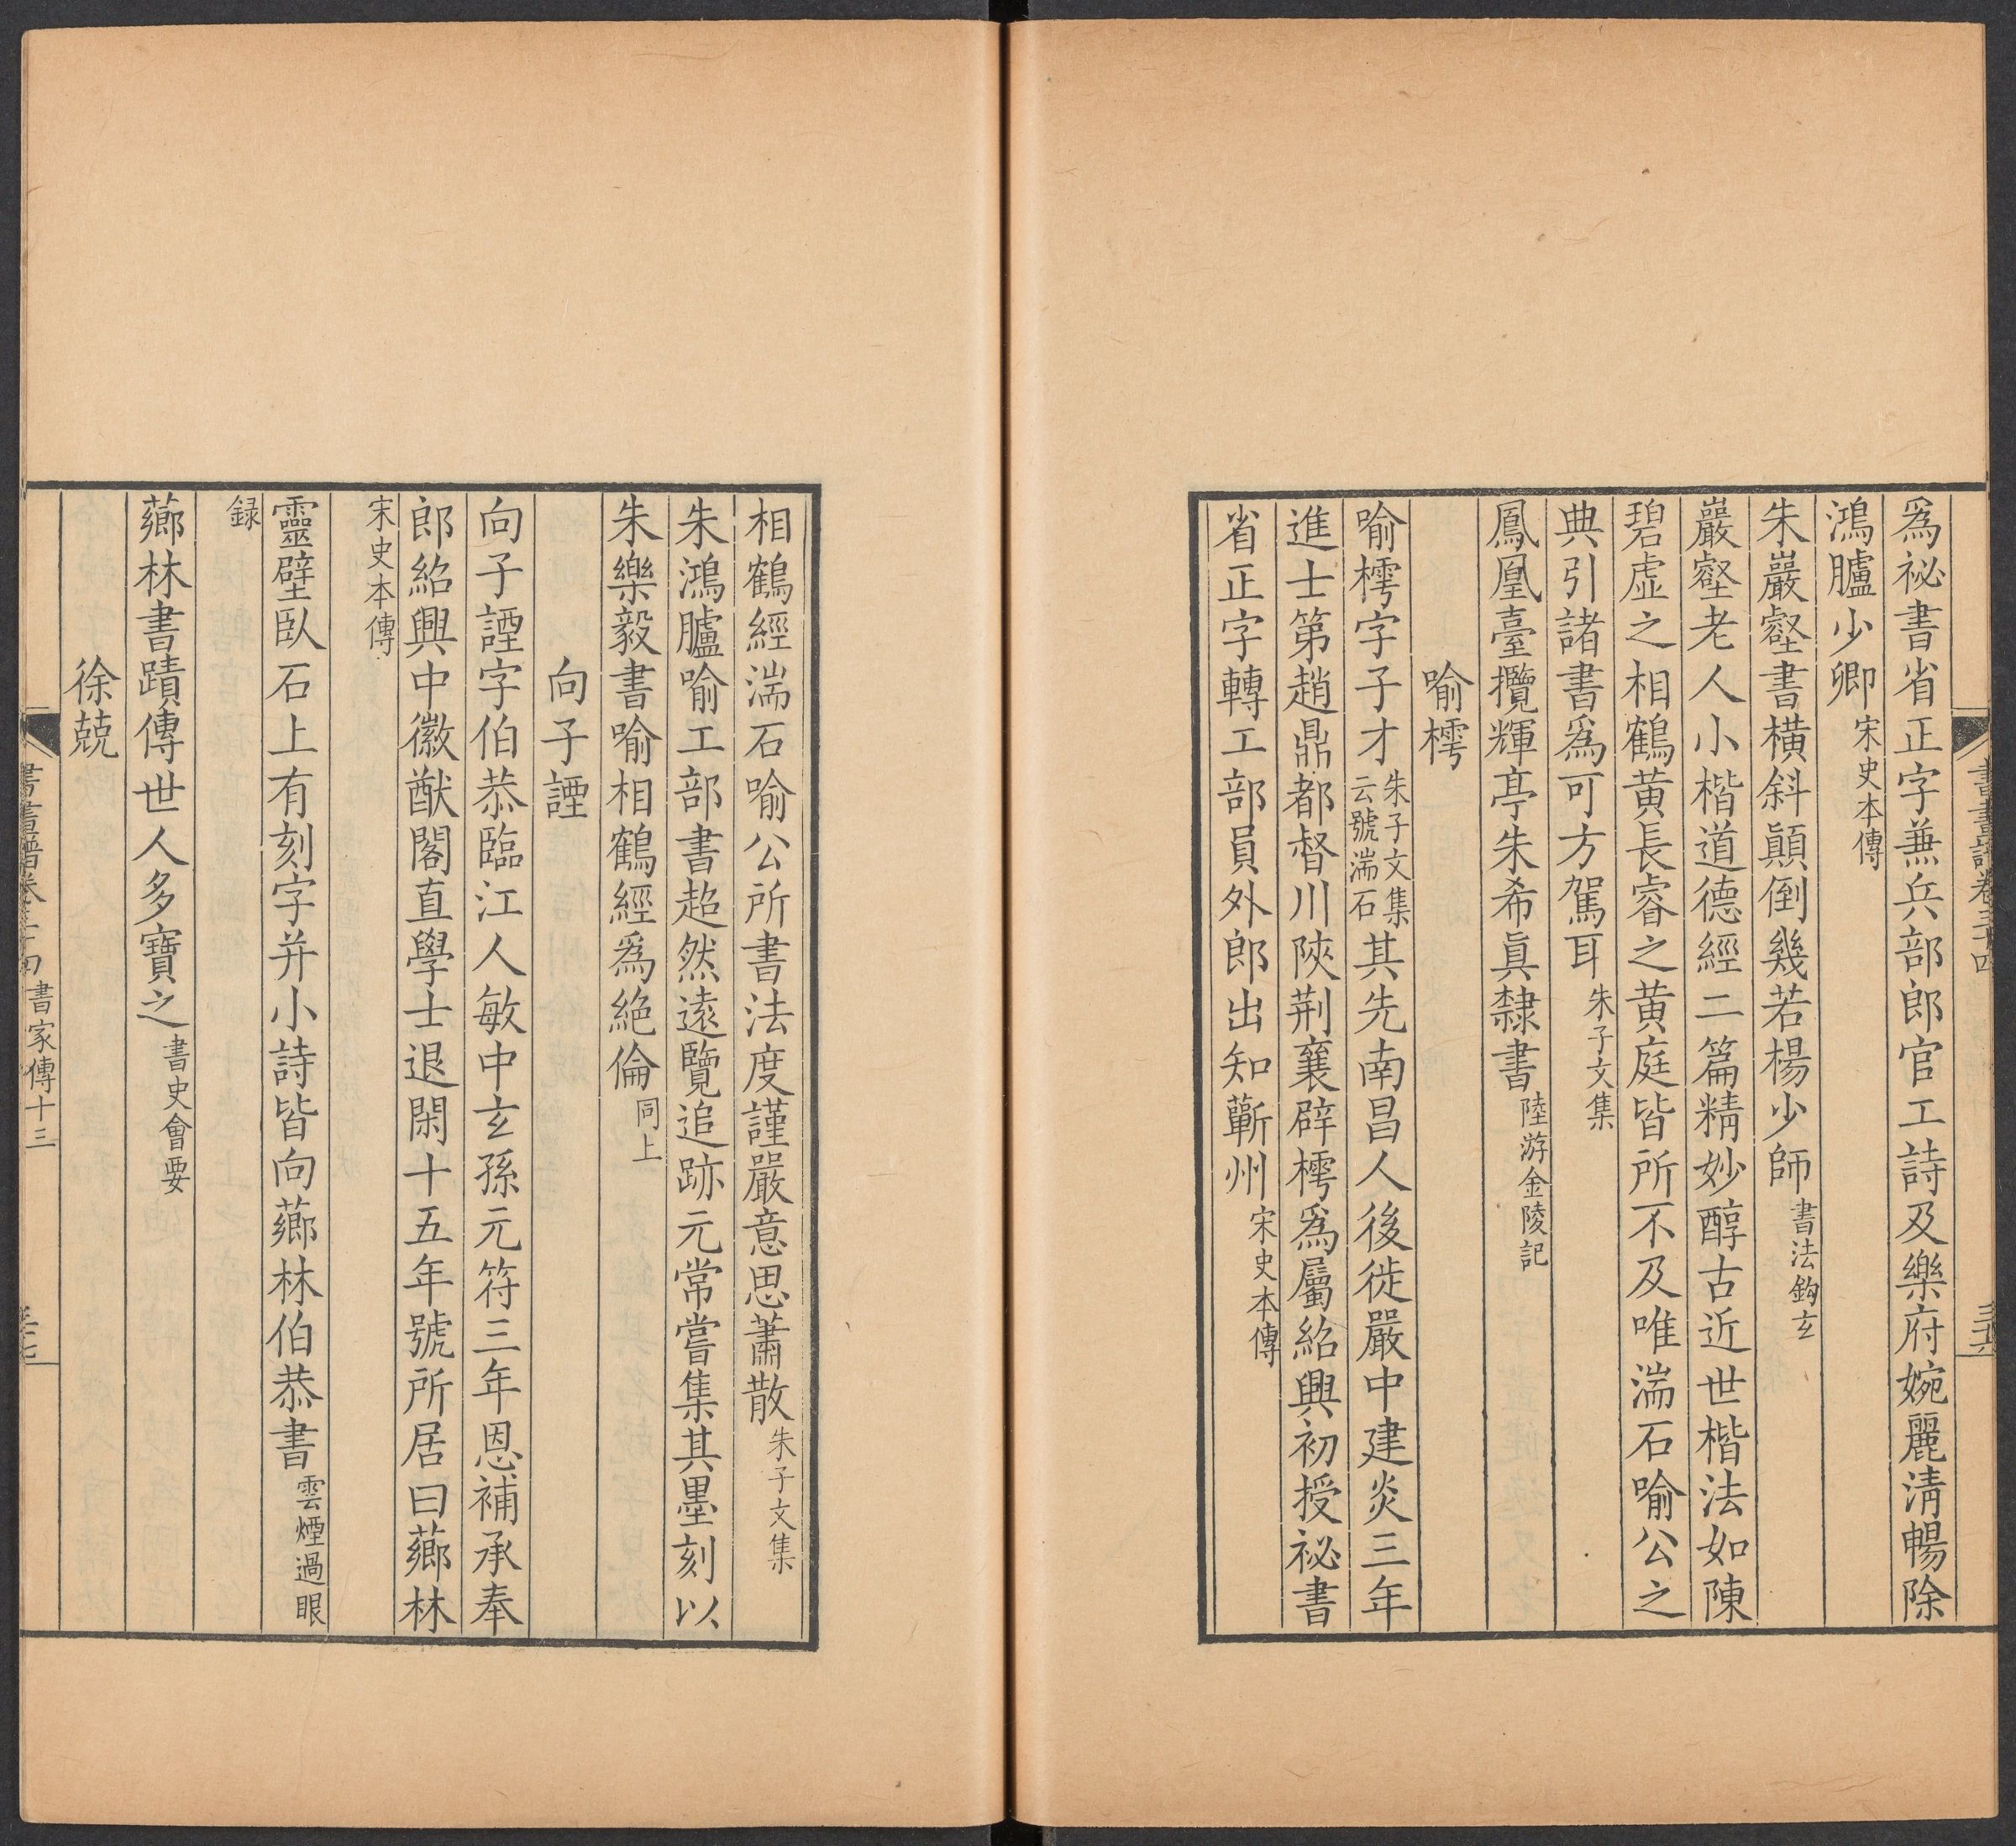 爲祕書省正字兼兵部郎官工詩及樂府婉麗淸暢除
鴻臚少卿宋史本傳
朱巖壑書橫斜顚倒幾若楊少師書法鈎玄
巖壑老人小楷道德經二篇精妙醇古近世楷法如陳
碧虛之相鶴黃長睿之黃庭皆所不及唯湍石喻公之
典引諸書爲可方駕耳朱子文集
鳳凰臺攬輝亭朱希眞隸書陸游金陵記
喻樗
喻樗字子才朱子文集云號湍石其先南昌人後徙嚴中建炎三年
進士第趙鼎都督川陝荆襄辟樗爲屬紹興初授祕書
省正字轉工部員外郎出知蘄州宋史本傳
相鶴經湍石喻公所書法度謹嚴意思蕭散朱子文集
朱鴻臚喻工部書超然遠覽追跡元常嘗集其墨刻以
朱樂毅書喻相鶴經爲絶倫同上
向子諲
向子諲字伯恭臨江人敏中玄孫元符三年恩補承奉
郎紹興中徽猷閣直學士退閑十五年號所居曰薌林
宋史本傳
靈壁臥石上有刻字并小詩皆向薌林伯恭書雲煙過眼
録
薌林書蹟傳世人多寶之書史會要
徐兢
書家傳十三